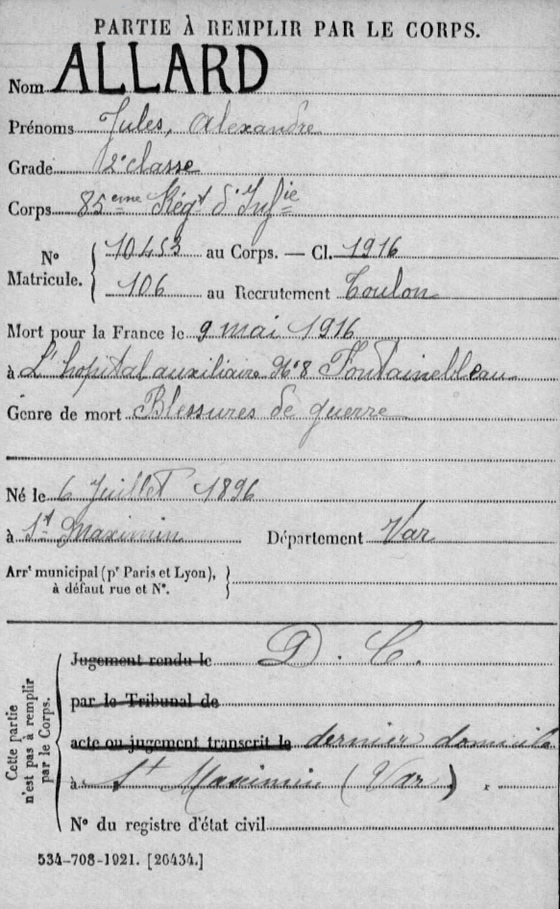 PARTIE À REMPLIR PAR LE CORPS.
Nom ALLARD
Prénoms Jules, Alexandre
Grade 2e classe
Corps 85eme Régt d'Infie
No Matricule. 10453 au Corps. — Cl. 1916
106 au Recrutement Toulon
Mort pour la France le 9 mai 1916
à L'hopital auxiliaire No 8 Fontainebleau
Genre de mort Blessures de guerre
Né le 6 Juillet 1896
à St Maximin Département Var
Arrt municipal (pr Paris et Lyon),
à défaut rue et No.
Cette partie n'est pas à remplir par le Corps.
Jugement rendu le D. C.
par le Tribunal de
acte ou jugement transcrit le dernier domicile
à St Maximin (Var)
No du registre d'état civil
534-708-1921. [26434.]